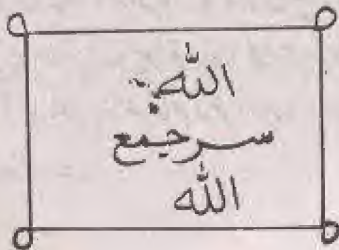 الله
سرجمع
الله